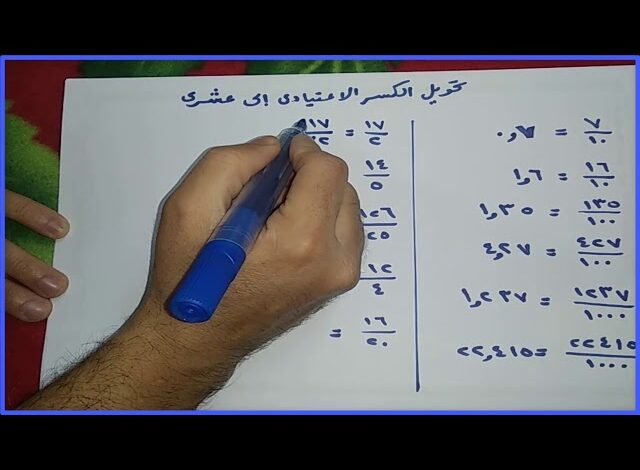 تحويل الكسر الاعتيادى إلى عشرى
٧/١٠ = ٠,٧
١٦/١٠ = ١,٦
١٣٥/١٠٠ = ١,٣٥
٤٢٧/١٠٠ = ٤,٢٧
١٢٣٧/١٠٠٠ = ١,٢٣٧
٢٢٤١٥/١٠٠٠ = ٢٢,٤١٥
١٧/٢ =
١٤/٥
١٢٦/٢٥
١٢/٤
١٦/٢٠ =